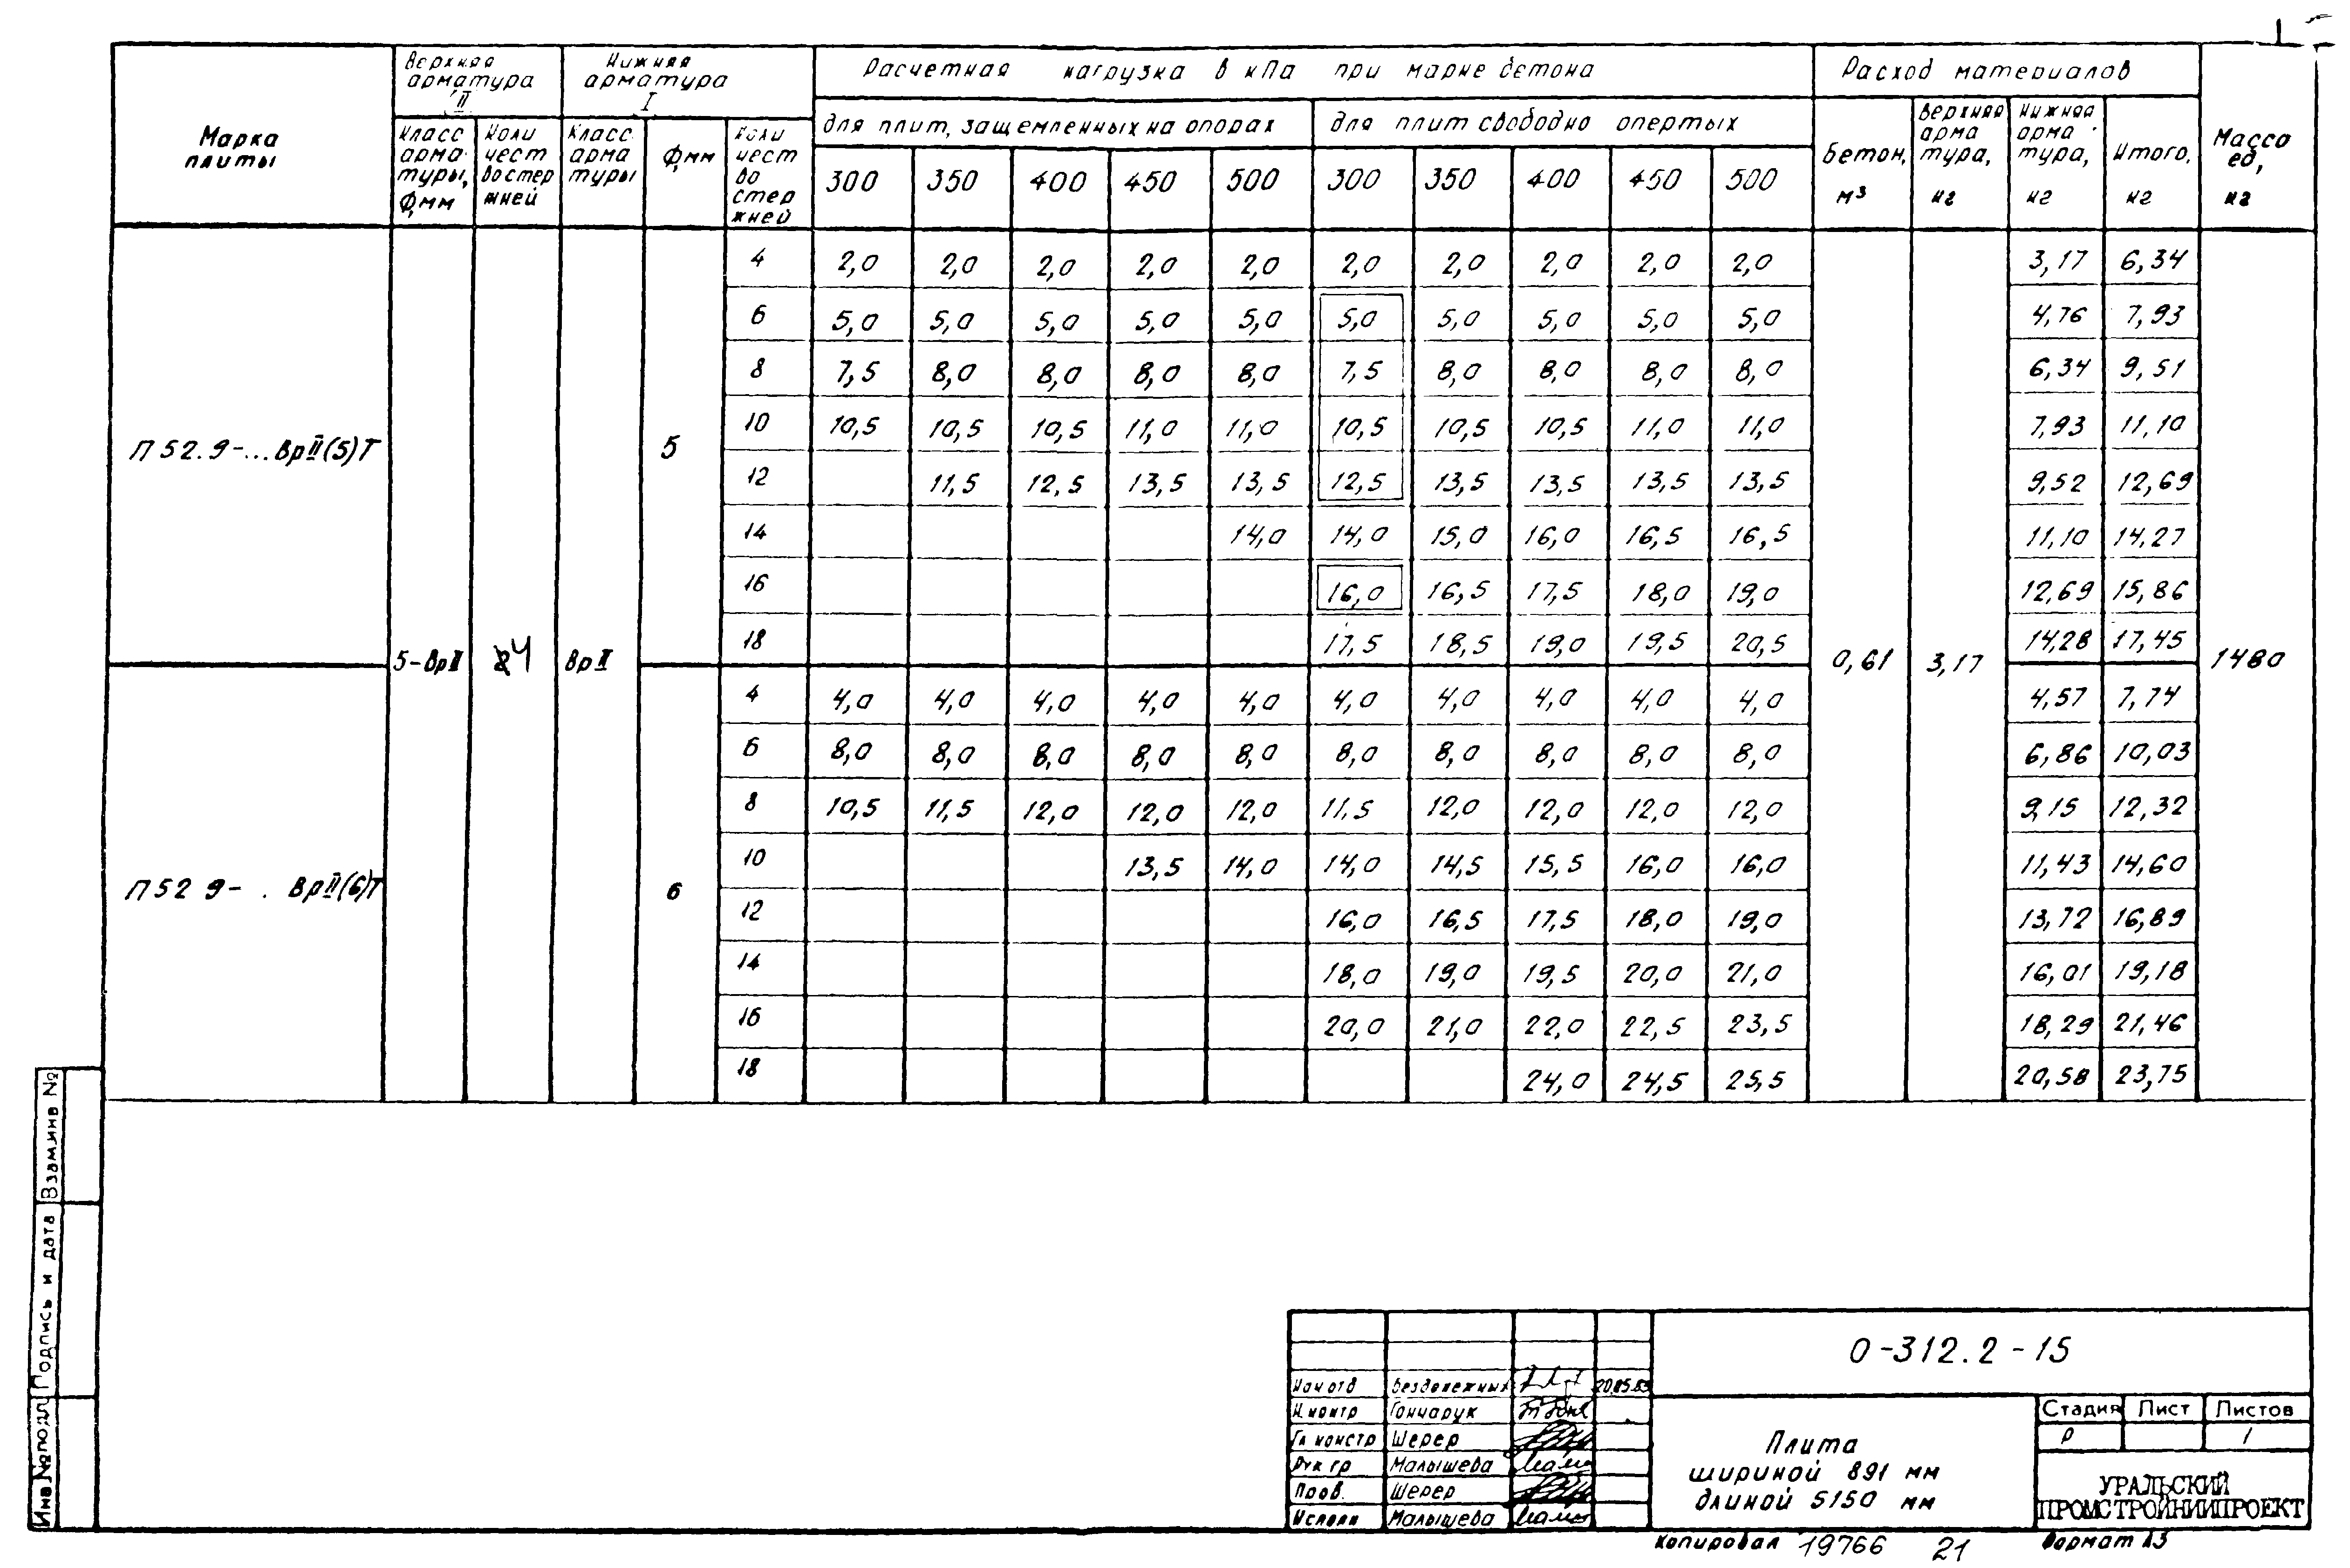 Марка плиты
Верхняя арматура II
Нижняя арматура I
Расчетная нагрузка в кПа при марке бетона
Расход материалов
Масса ед, кг
Класс арматуры, Ф,мм
Количество стержней
Класс арматуры
Ф,мм
Количество стержней
для плит, защемленных на опорах
для плит свободно опертых
300 350 400 450 500 300 350 400 450 500
Бетон, м³
Верхняя арматура, кг
Нижняя арматура, кг
Итого, кг
П52.9-...ВрII(5)Т
5-ВрII 4 ВрII 5
0,61 3,17 1480
4 2,0 2,0 2,0 2,0 2,0 2,0 2,0 2,0 2,0 2,0 3,17 6,34
6 5,0 5,0 5,0 5,0 5,0 5,0 5,0 5,0 5,0 5,0 4,76 7,93
8 7,5 8,0 8,0 8,0 8,0 7,5 8,0 8,0 8,0 8,0 6,34 9,51
10 10,5 10,5 10,5 11,0 11,0 10,5 10,5 10,5 11,0 11,0 7,93 11,10
12 11,5 12,5 13,5 13,5 12,5 13,5 13,5 13,5 13,5 9,52 12,69
14 14,0 14,0 15,0 16,0 16,5 16,5 11,10 14,27
16 16,0 16,5 17,5 18,0 19,0 12,69 15,86
18 17,5 18,5 19,0 19,5 20,5 14,28 17,45
П52 9- . ВрII(6)Т
6
4 4,0 4,0 4,0 4,0 4,0 4,0 4,0 4,0 4,0 4,0 4,57 7,74
6 8,0 8,0 8,0 8,0 8,0 8,0 8,0 8,0 8,0 8,0 6,86 10,03
8 10,5 11,5 12,0 12,0 12,0 11,5 12,0 12,0 12,0 12,0 9,15 12,32
10 13,5 14,0 14,0 14,5 15,5 16,0 16,0 11,43 14,60
12 16,0 16,5 17,5 18,0 19,0 13,72 16,89
14 18,0 19,0 19,5 20,0 21,0 16,01 19,18
16 20,0 21,0 22,0 22,5 23,5 18,29 21,46
18 24,0 24,5 25,5 20,58 23,75
Взам.инв №
Подпись и дата
Инв №подл
О-312.2-15
Нач отд Безденежных
Н.контр Гончарук
Гл констр Шерер
Рук гр Малышева
Пров. Шерер
Исполн Малышева
Плита
шириной 891 мм
длиной 5150 мм
Стадия Лист Листов
Р 1
УРАЛЬСКИЙ
ПРОМСТРОЙНИИПРОЕКТ
Копировал 19766 21 Формат А3